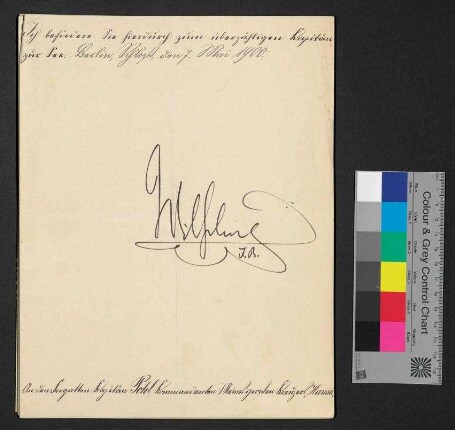 Ich befördere Sie hierdurch zum überzähligen Kapitän
zur See. Berlin, Schloß, den 7. Mai 1900.
Wilhelm
I.R.
An den Fregatten-Kapitän Pohl Kommandanten Meines großen Kreuzers Hansa.
Colour & Grey Control Chart